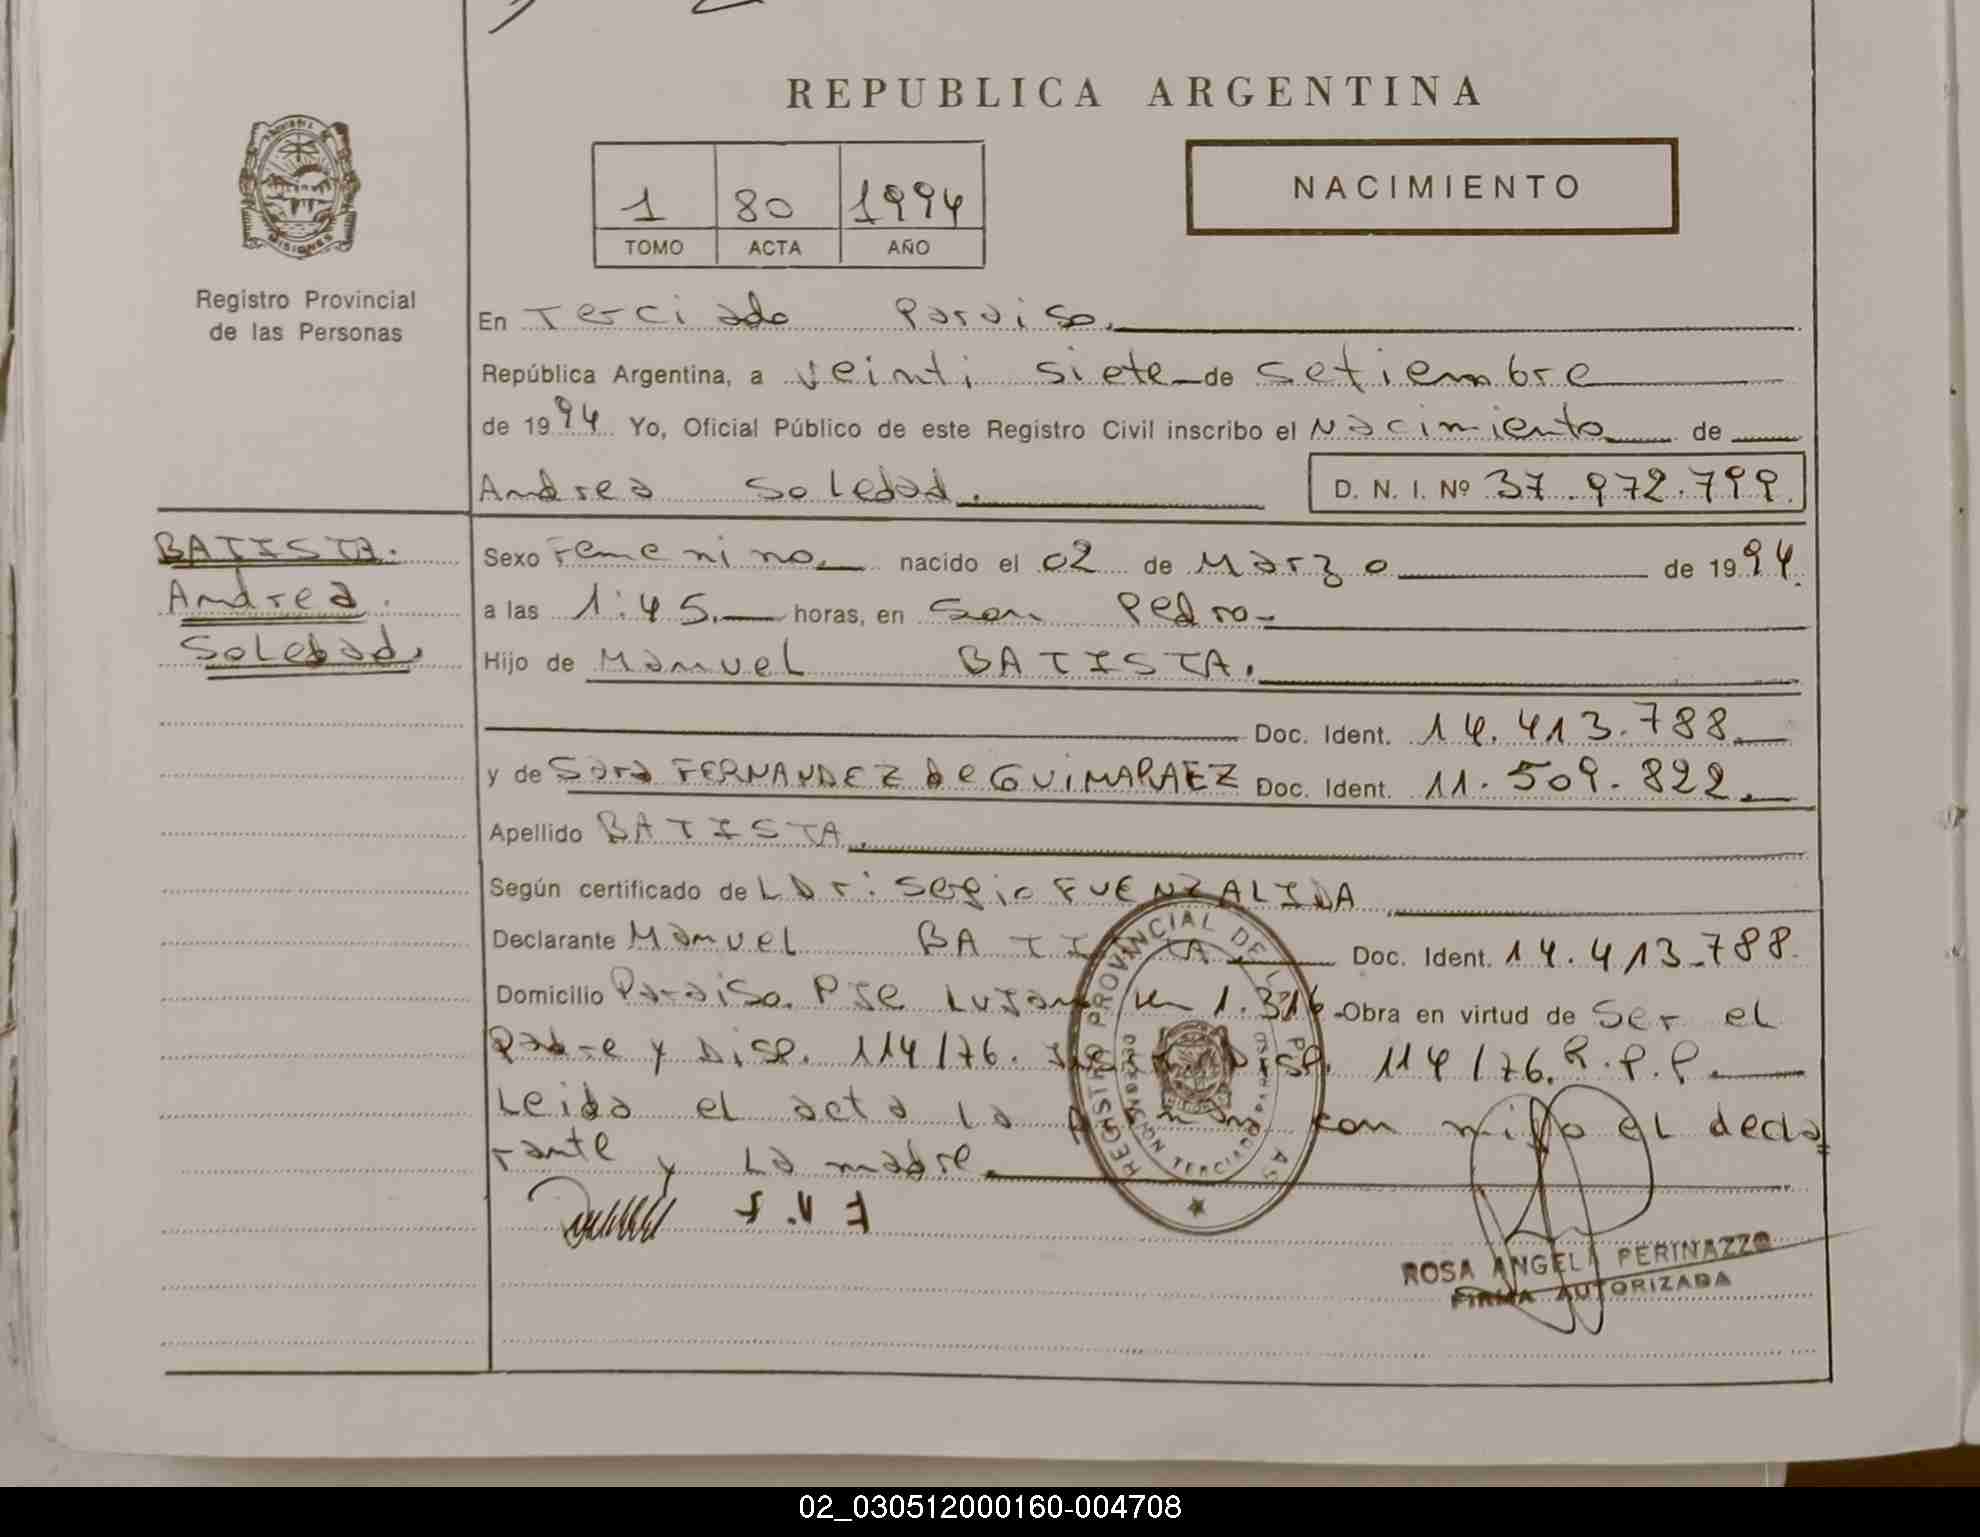 REPUBLICA ARGENTINA
1 80 1994
TOMO ACTA AÑO
NACIMIENTO
MISIONES
Registro Provincial
de las Personas
En Terciado Paraiso.
República Argentina, a veinti siete de Setiembre
de 1994 Yo, Oficial Público de este Registro Civil inscribo el Nacimiento de
Andrea Soledad. D. N. I. Nº 37.972.799.
BATISTA.
Andrea.
Soledad.
Sexo Femenino. nacido el 02 de Marzo de 1994.
a las 1:45. horas, en San Pedro-
Hijo de Manuel BATISTA.
Doc. Ident. 14.413.788.
y de Sara FERNANDEZ de GUIMARAEZ Doc. Ident. 11.509.822.
Apellido BATISTA.
Según certificado de L Dr: Sergio FUENZALIDA
Declarante Manuel BATISTA Doc. Ident. 14.413.788.
Domicilio Paraiso. Pje Lujan km 1.316-Obra en virtud de Ser el
Padre y Disp. 114/76. Disp. 114/76. R.P.P.
Leida el acta la con migo el decla
rante y La madre.
REGISTRO PROVINCIAL DE LAS P
ROSA ANGELA PERINAZZO
FIRMA AUTORIZADA
02_030512000160-004708